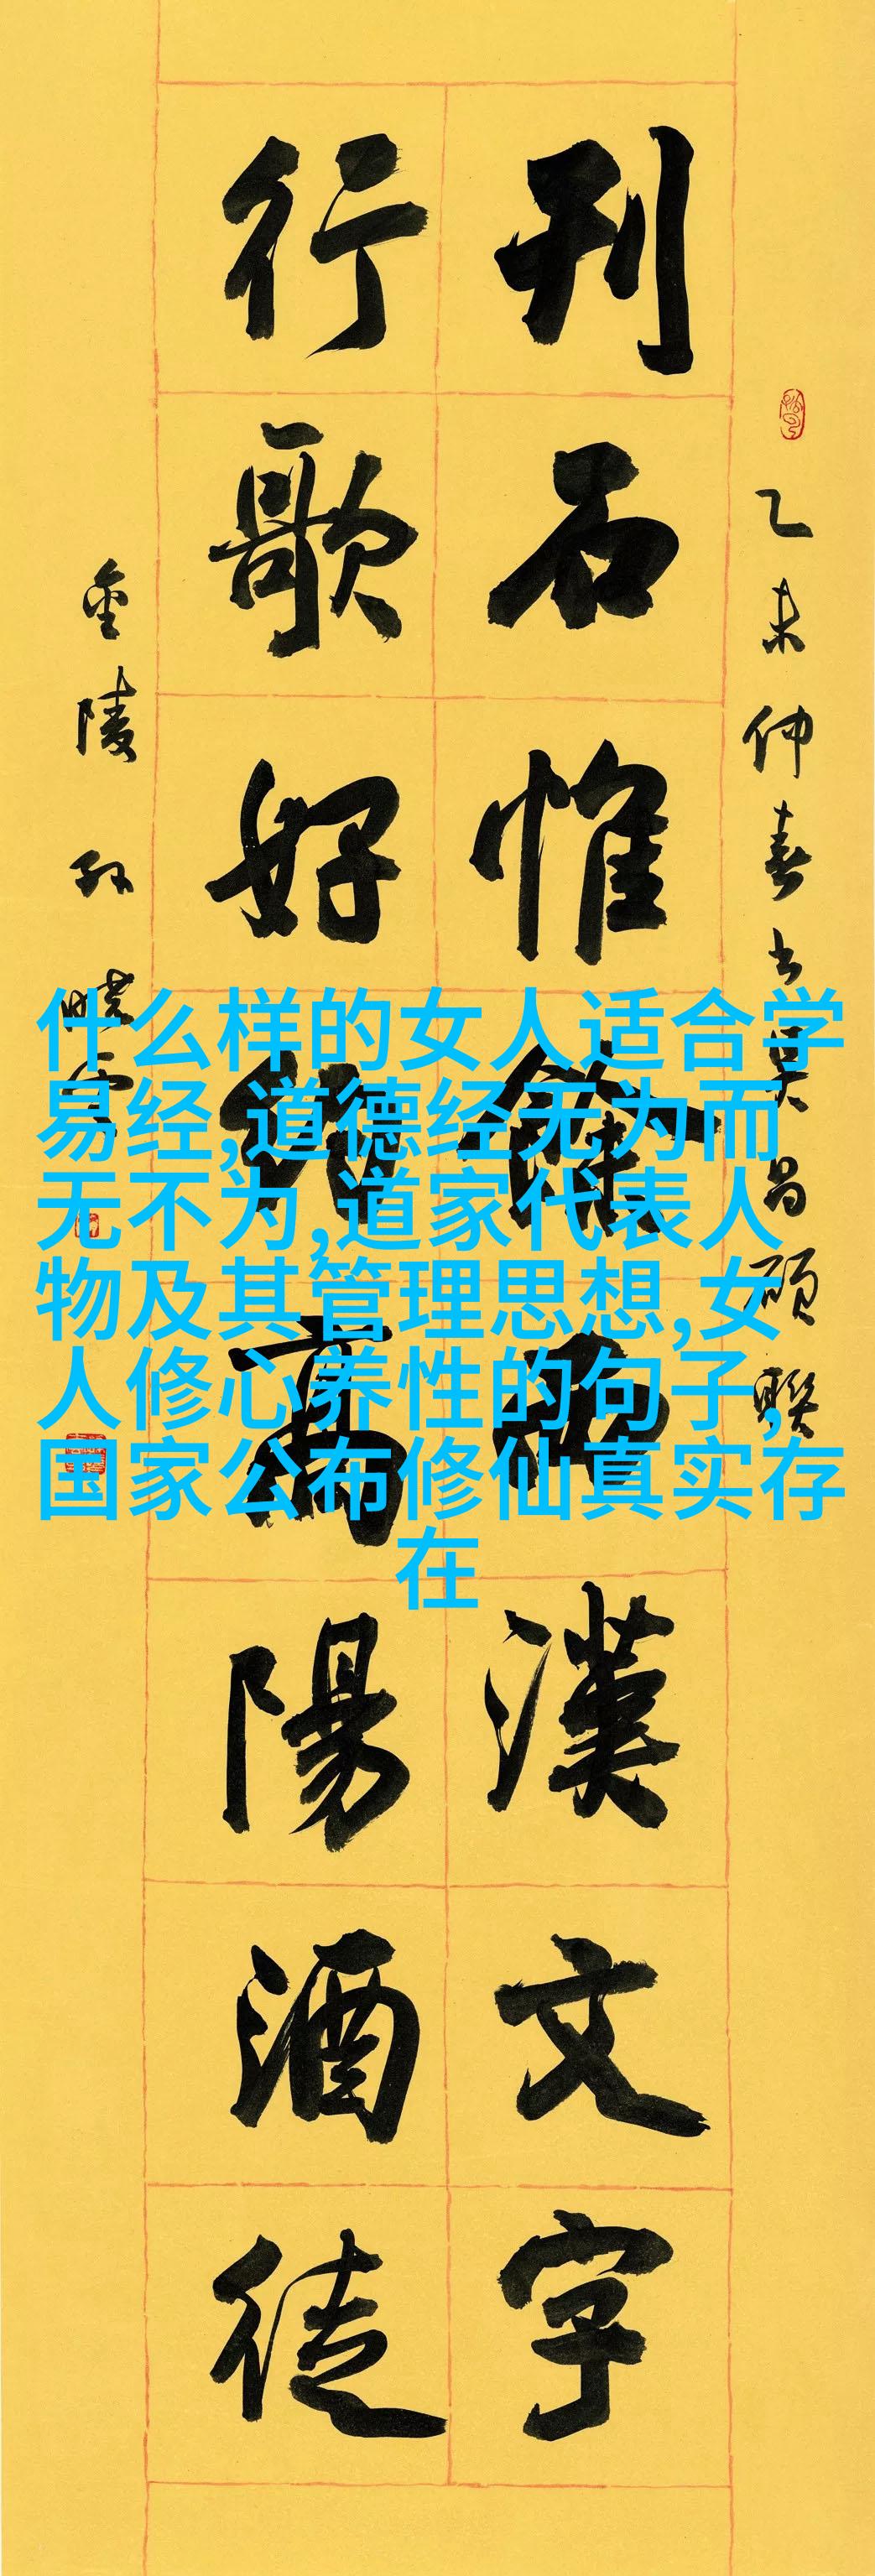 乙未仲春书吴昌碩聯
刊石惟餘西漢文字
行歌好約高陽酒徒
金陵孙曉云
什么样的女人适合学
易经,道德经无为而
无不为,道家代表人
物及其管理思想,女
人修心养性的句子,
国家公布修仙真实存
在